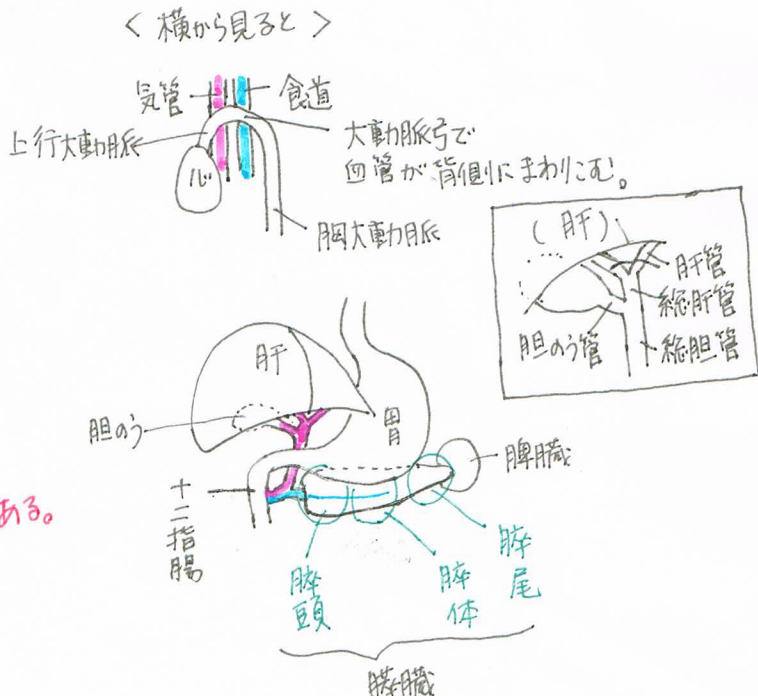 < 横から見ると >
気管
食道
上行大動脈
心
大動脈弓で
血管が背側にまわりこむ。
胸大動脈
(肝)
肝管
総肝管
胆のう管
総胆管
肝
胃
胆のう
脾臓
ある。
十二指腸
膵頭
膵体
膵尾
膵臓